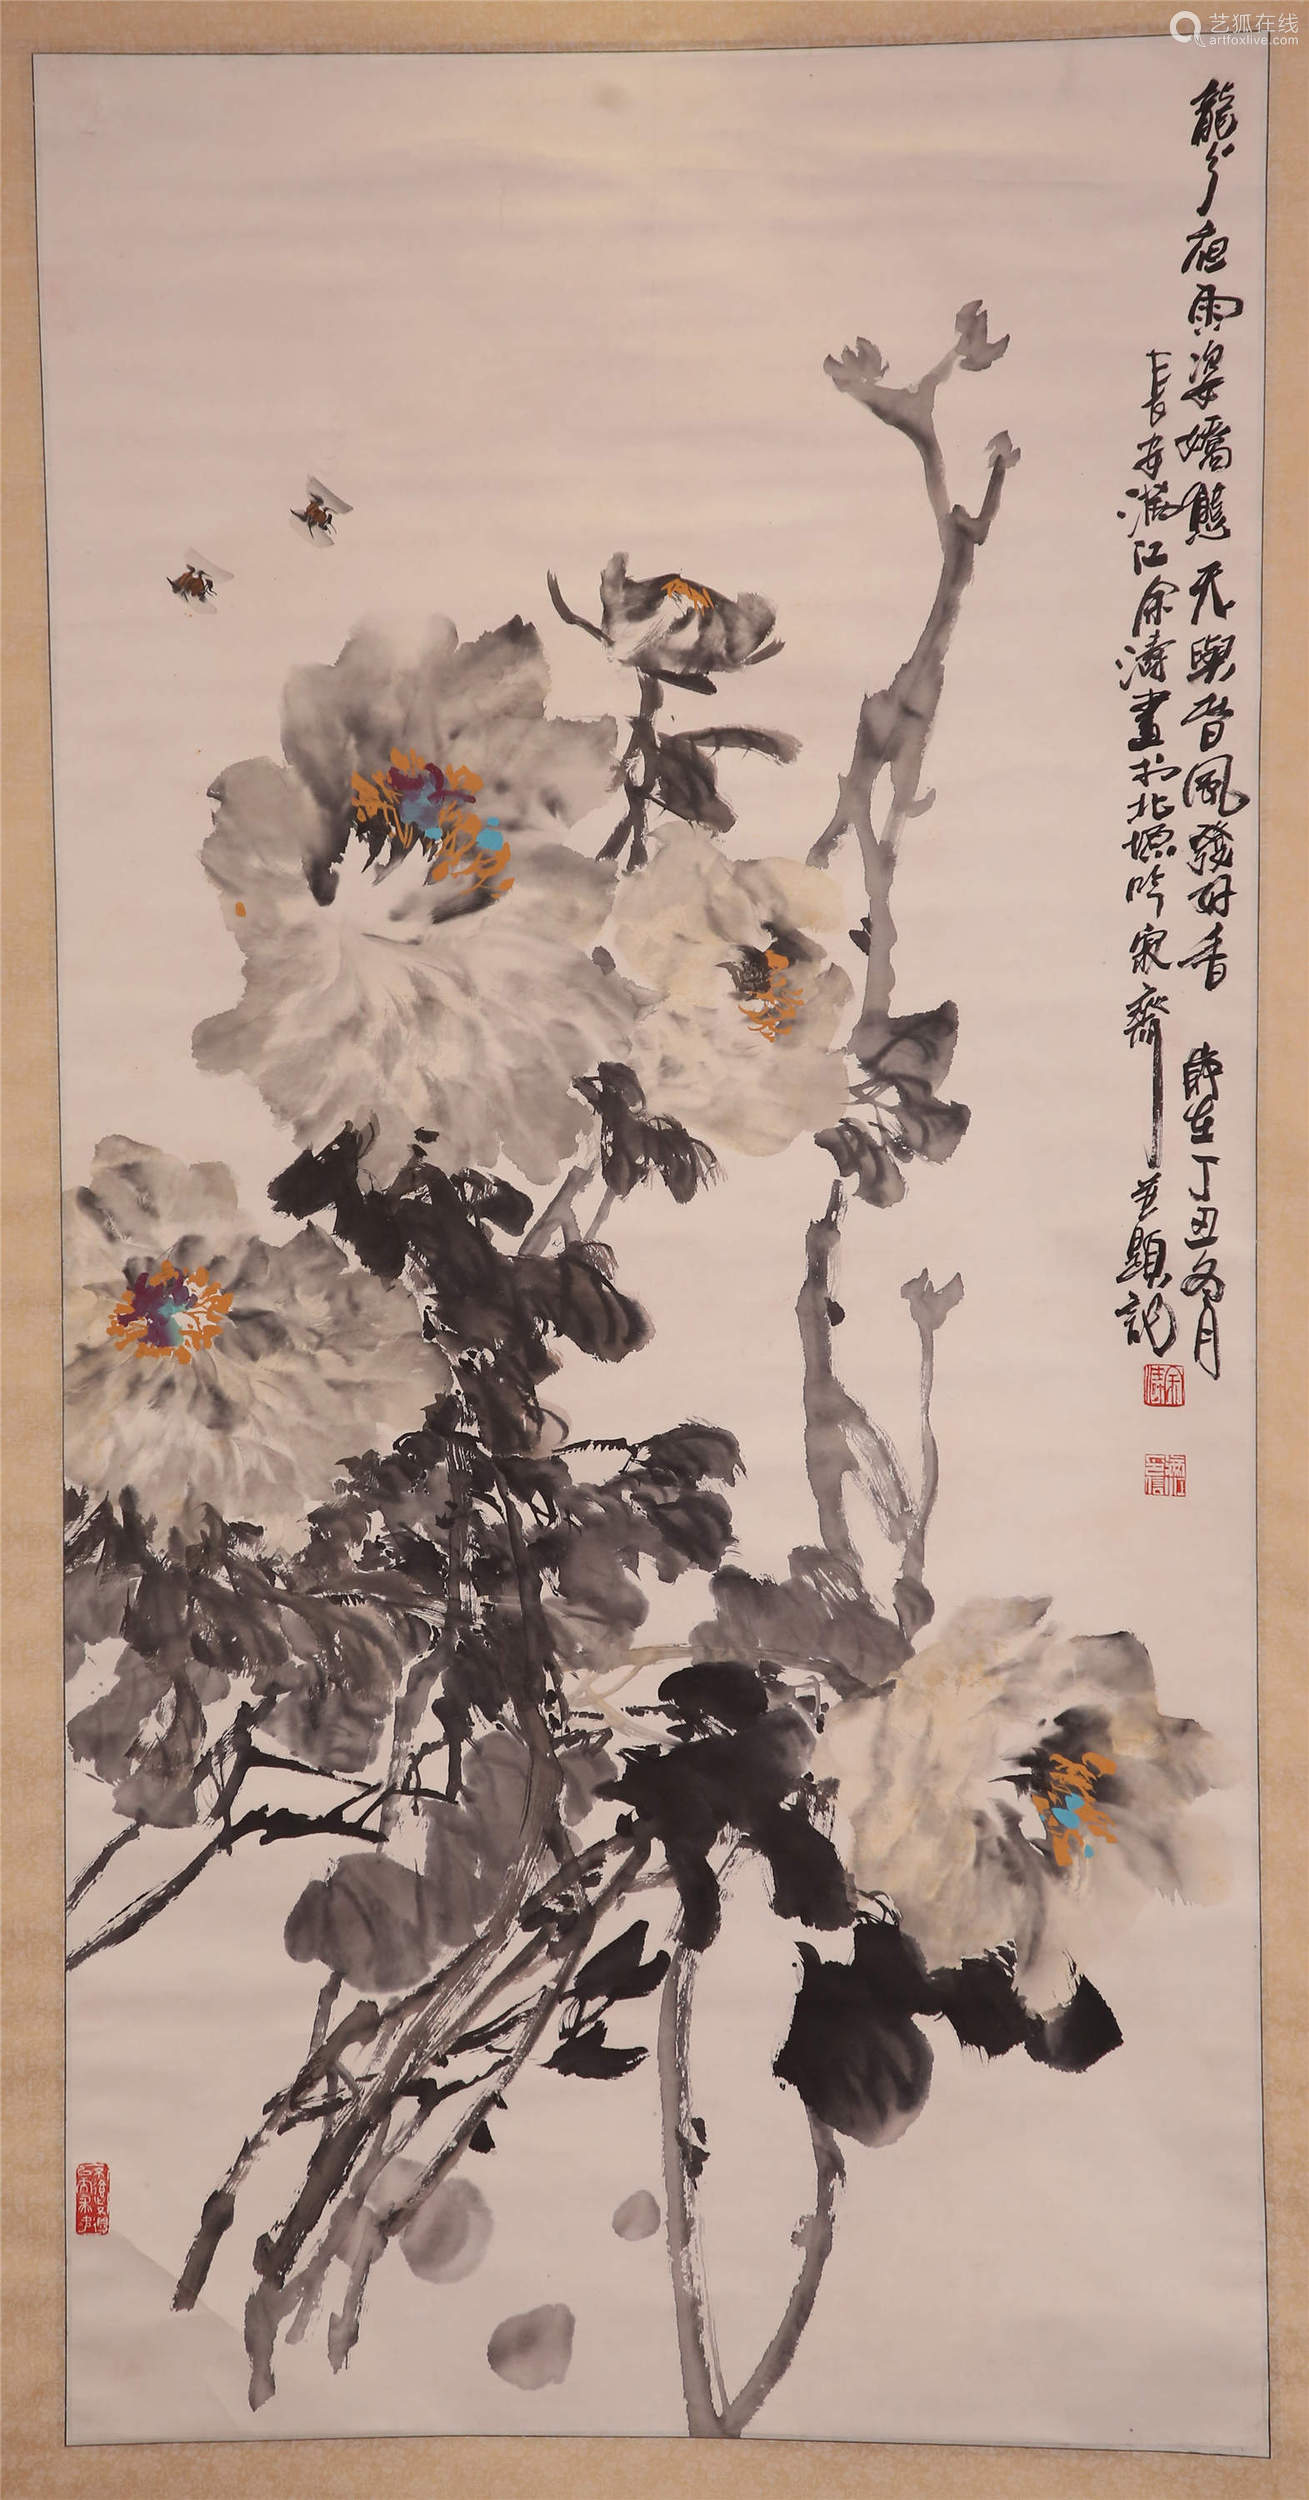 艺狐在线
artfoxlive.com
龍分夜雨姿嬌態天與昏風發好香 時在丁丑冬月
長安滿江余濤畫於北塬吟泉齋並題記
余濤